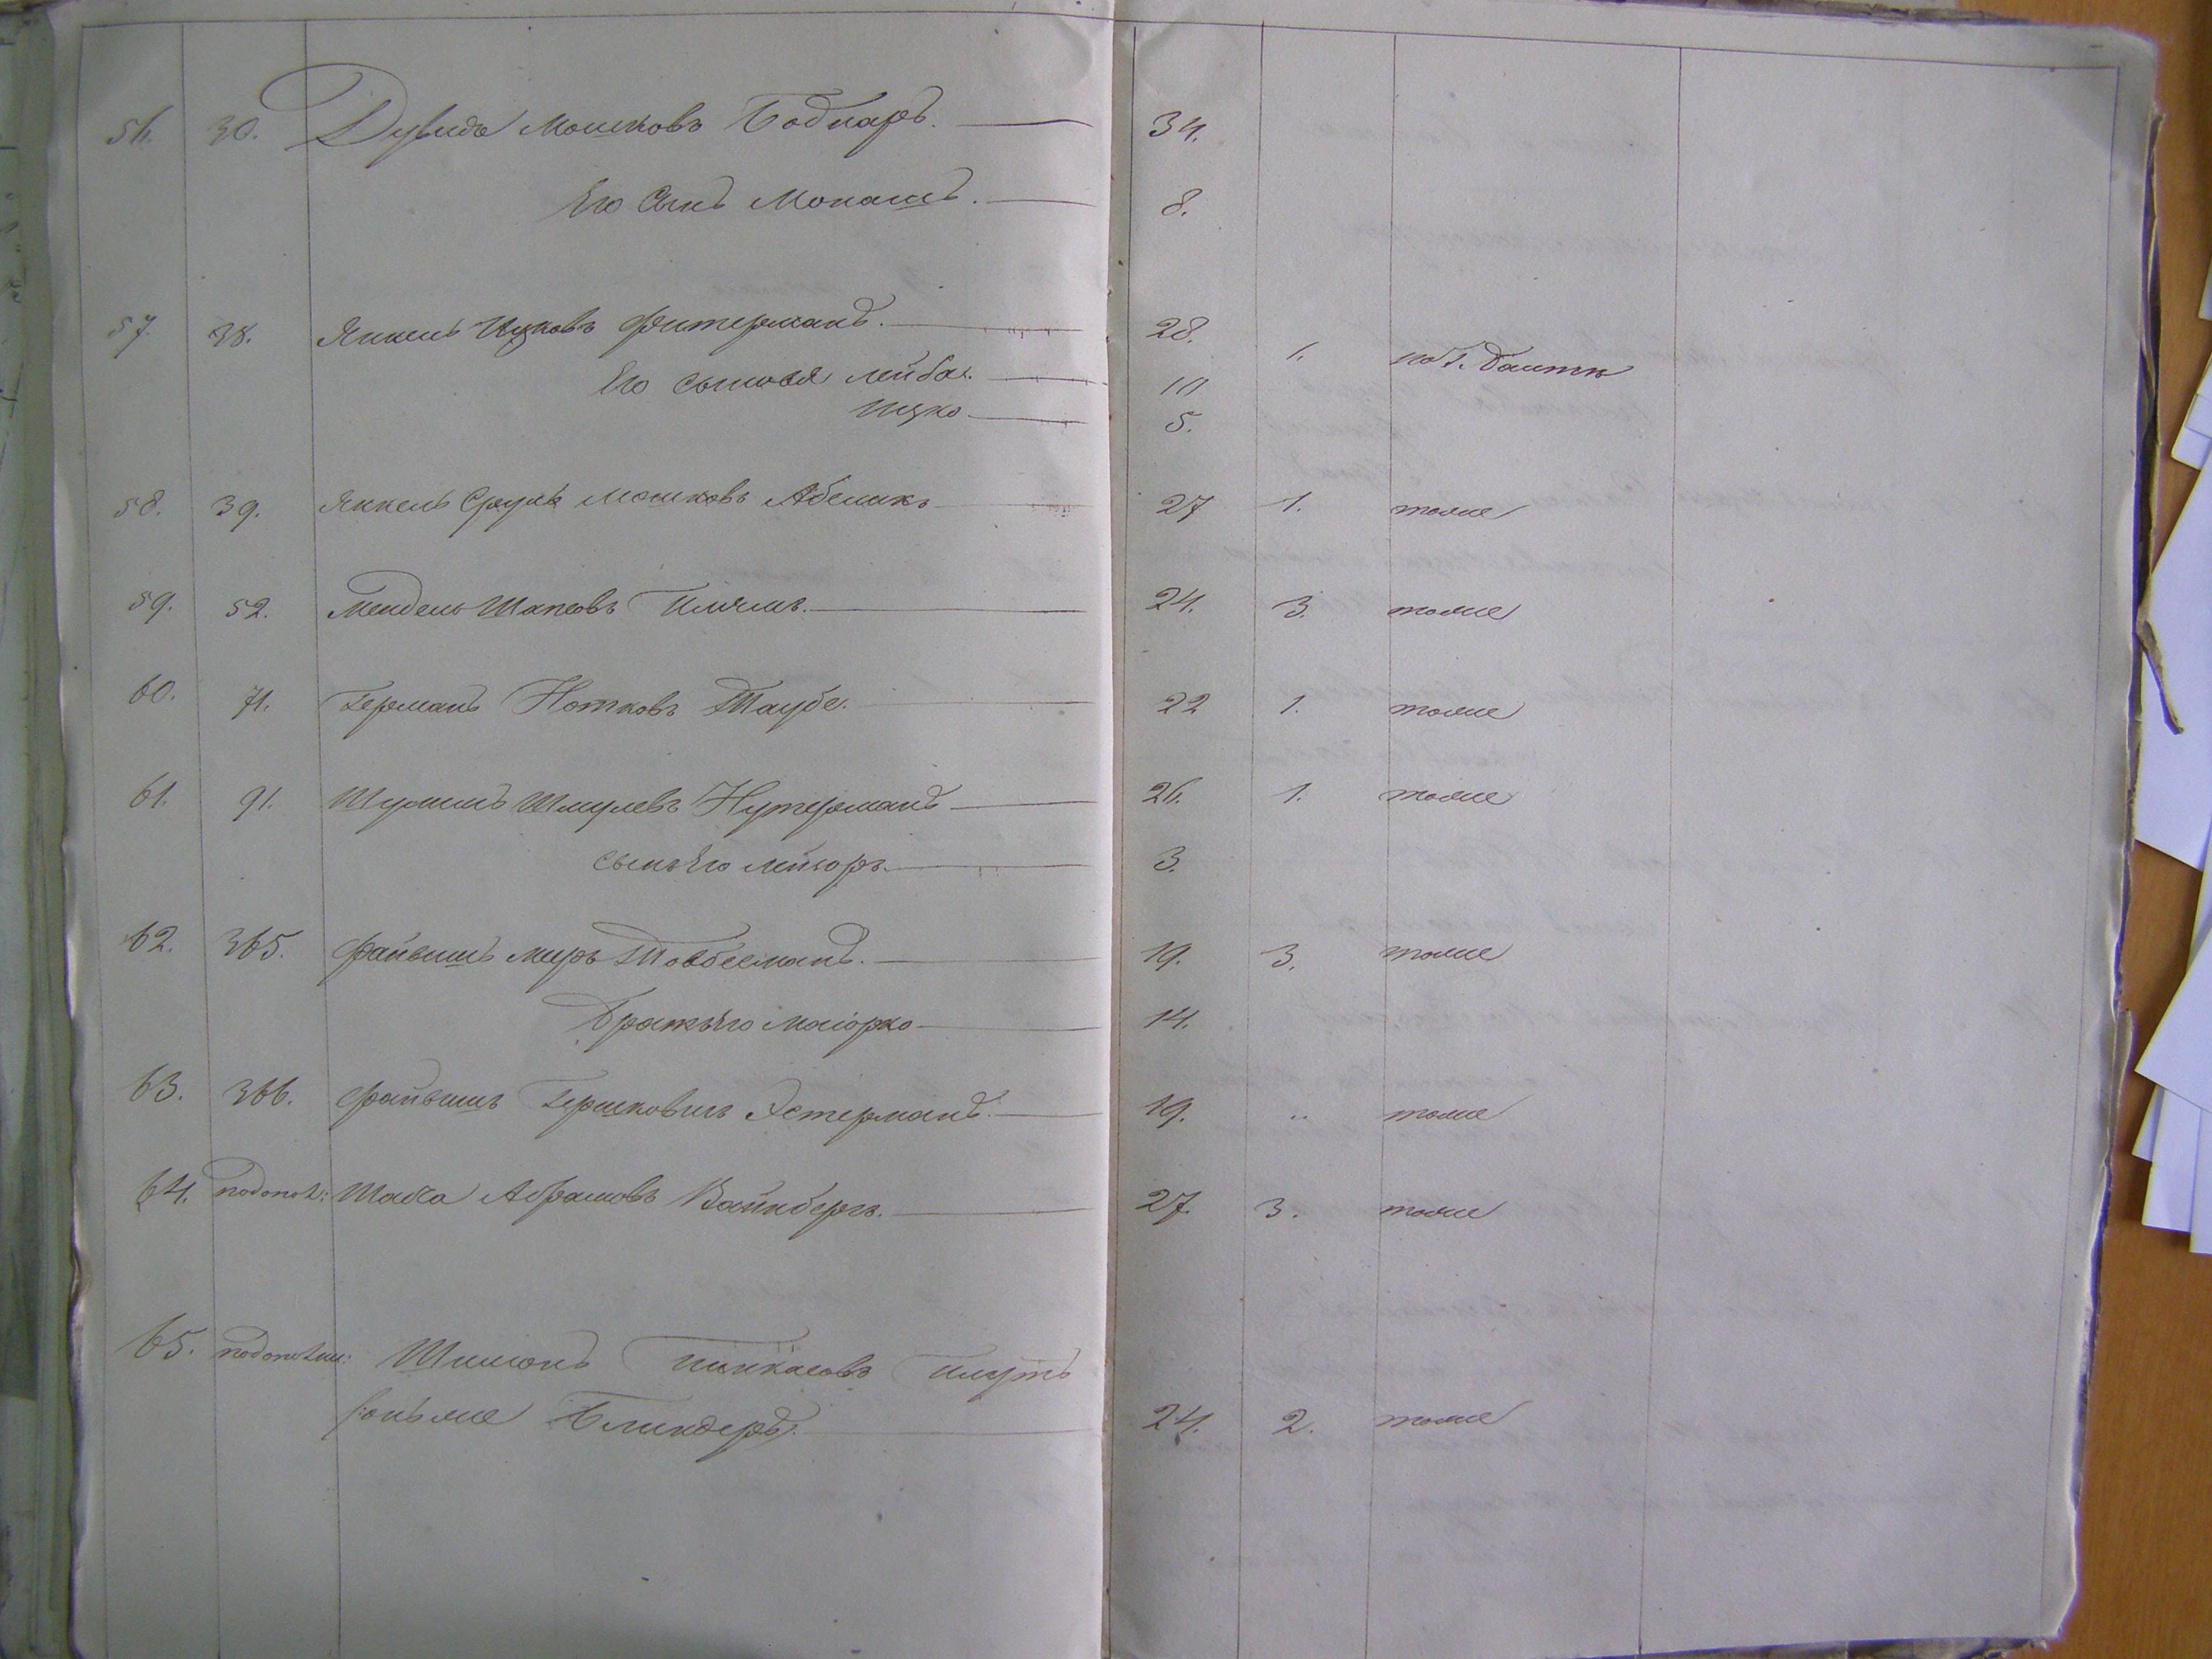 56. 30. Дувидъ Мошковъ Боднаръ. 34.
Его Сынъ Монашъ. 8.
57. 38. Янкель Ицковъ Фитерманъ. 28. 1. по г. Балтѣ
Его сыновья Лейба. 10
Ицко 5.
58. 39. Янкель Сруль Мошковъ Абеликъ 27 1. тоже
59. 52. Мендель Шапсовъ 24. 3. тоже
60. 71. Германъ Нотковъ Таубе. 22 1. тоже
61. 91. Шулимъ Шмулевъ Нутерманъ 26. 1. тоже
сынъ Его Лейзоръ 3.
62. 365. Файвишъ Меръ Товбееманъ. 19. 3. тоже
Братъ Его Маіорко 14.
63. 366. Файвишъ Гершковичъ Эстерманъ. 19. „ тоже
64. подопол: Шабса Абрамовъ Вайнбергъ. 27. 3. тоже
65. подополни: Шимонъ Пинкасовъ
онъ же Блиндеръ. 24. 2. тоже